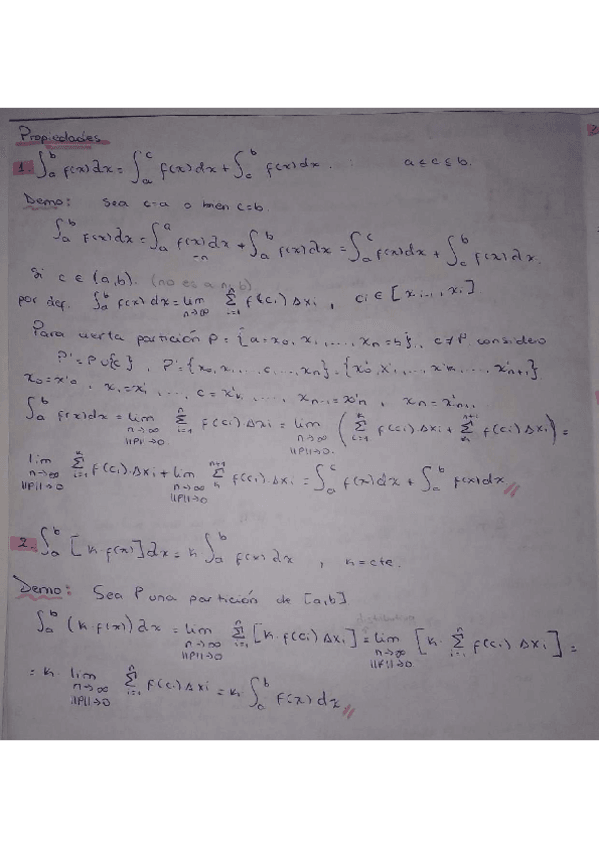 Propiedades
1. ∫_a^b f(x) dx = ∫_a^c f(x) dx + ∫_c^b f(x) dx. a ≤ c ≤ b.
Demo: Sea c=a o bien c=b.
∫_a^b f(x) dx = ∫_a^a f(x) dx + ∫_a^b f(x) dx = ∫_a^c f(x) dx + ∫_c^b f(x) dx.
Si c ∈ (a,b). (no es a ni b)
por def. ∫_a^b f(x) dx = lim_{n→∞} Σ_{i=1}^n f(ci) Δxi, ci ∈ [xi-1, xi].
Para cierta partición P = {a=x0, x1, ..., xn=b}, c∉P considero
P' = P∪{c}, P' = {x0, x1, ..., c, ..., xn} = {x'0, x'1, ..., x'k, ..., x'n+1}
x0=x'0, x1=x'1, ..., c=x'k, ..., xn-1=x'n, xn=x'n+1
∫_a^b f(x) dx = lim_{n→∞, ||P||→0} Σ_{i=1}^n f(ci) Δxi = lim_{n→∞, ||P||→0} (Σ_{i=1}^k f(ci) Δxi + Σ_k^{n+1} f(ci) Δxi) =
lim_{n→∞, ||P||→0} Σ_{i=1}^k f(ci) Δxi + lim_{n→∞, ||P||→0} Σ_k^{n+1} f(ci) Δxi = ∫_a^c f(x) dx + ∫_c^b f(x) dx //
2. ∫_a^b [k·f(x)] dx = k ∫_a^b f(x) dx, k=cte.
Demo: Sea P una partición de [a,b]
∫_a^b (k·f(x)) dx = lim_{n→∞, ||P||→0} Σ_{i=1}^n [k·f(ci) Δxi] = lim_{n→∞, ||P||→0} [k· Σ_{i=1}^n f(ci) Δxi] =
= k· lim_{n→∞, ||P||→0} Σ_{i=1}^n f(ci) Δxi = k· ∫_a^b f(x) dx //